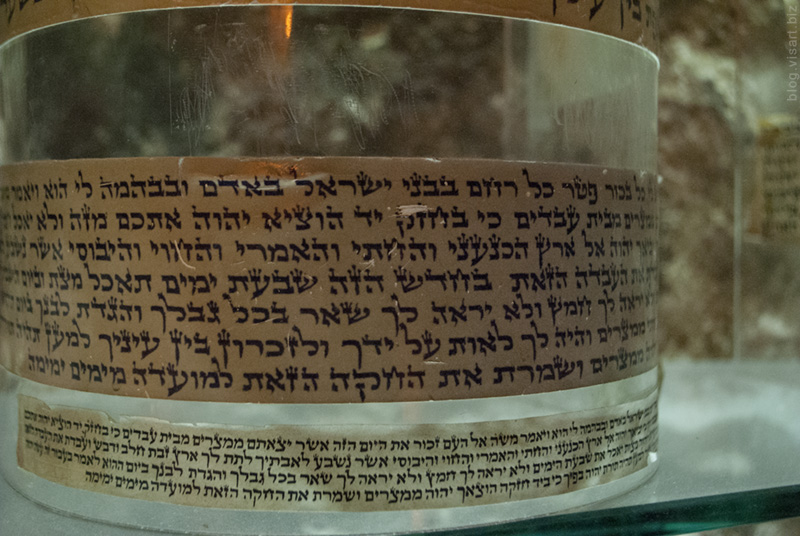 בין
כל בכור פטר כל רחם בבני ישראל באדם ובבהמה לי הוא ויאמר
ממצרים מבית עבדים כי בחזק יד הוציא יהוה אתכם מזה ולא יאכל
יהוה אל ארץ הכנעני והחתי והאמרי והחוי והיבוסי אשר נשבע
את העבדה הזאת בחדש הזה שבעת ימים תאכל מצת וביום
יראה לך חמץ ולא יראה לך שאר בכל גבלך והגדת לבנך ביום
ממצרים והיה לך לאות על ידך ולזכרון בין עיניך למען תהיה
ממצרים ושמרת את החקה הזאת למועדה מימים ימימה
ישראל באדם ובבהמה לי הוא ויאמר משה אל העם זכור את היום הזה אשר יצאתם ממצרים מבית עבדים כי בחזק יד הוציא יהוה אתכם
אל ארץ הכנעני והחתי והאמרי והחוי והיבוסי אשר נשבע לאבתיך לתת לך ארץ זבת חלב ודבש ועבדת את העבדה
יאכל את שבעת הימים ולא יראה לך חמץ ולא יראה לך שאר בכל גבלך והגדת לבנך ביום ההוא לאמר בעבור זה
תורת יהוה בפיך כי ביד חזקה הוצאך יהוה ממצרים ושמרת את החקה הזאת למועדה מימים ימימה
blog.visart.biz